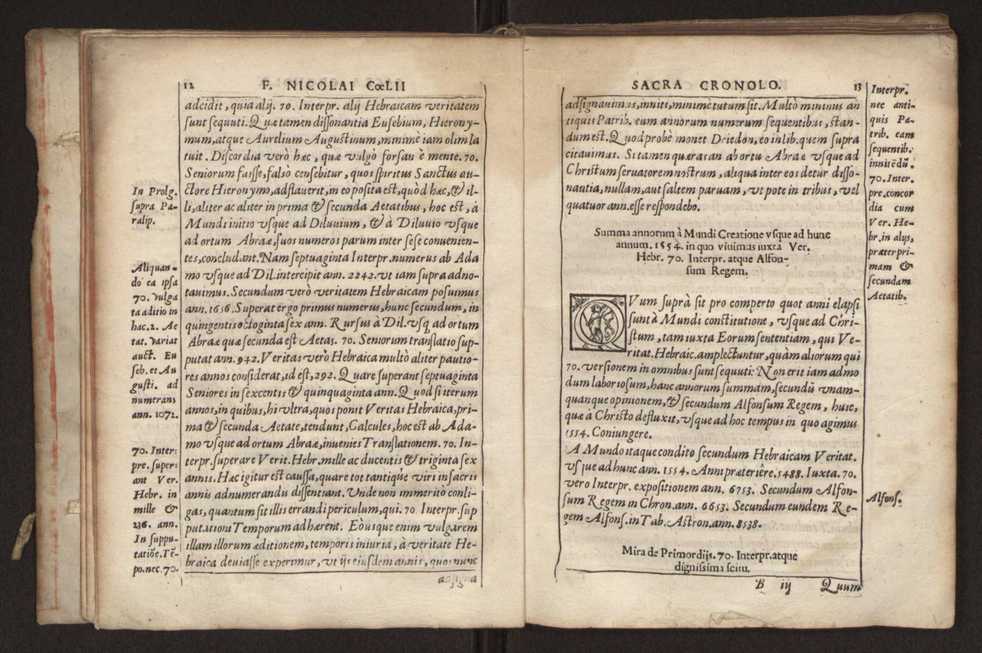 12 F. NICOLAI CœLII
adcidit, quia alij. 70. Interpr. alij Hebraicam veritatem
sunt sequuti. Quæ tamen dissonantia Eusebium, Hierony-
mum, atque Aurelium Augustinum, minimè iam olim la
tuit. Discordia verò hæc, quæ vulgò forsan è mente. 70.
Seniorum fuisse, falsò censebitur, quos spiritus Sanctus au-
ctore Hieronymo, adflauerit, in eo posita est, quòd hæc, & il-
li, aliter ac aliter in prima & secunda Aetatibus, hoc est, à
Mundi initio vsque ad Diluuium, & à Diluuio vsque
ad ortum Abraæ, suos numeros parum inter sese conuenien-
tes, concludant. Nam septuaginta Interpr. numerus ab Ada
mo vsque ad Dil. intercipit ann. 2242. vt iam supra adno-
tauimus. Secundum verò veritatem Hebraicam posuimus
ann. 1656. Superat ergo primus numerus, hunc secundum, in
quingentis octoginta sex ann. Rursus à Dil. vsq; ad ortum
Abraæ quæ secunda est Aetas. 70. Seniorum translatio sup-
putat ann. 942. Veritas verò Hebraica multò aliter pautio-
res annos considerat, id est, 292. Quare superant septuaginta
Seniores in sexcentis & quinquaginta ann. Quod si iterum
annos, in quibus, hi vltra, quos ponit Veritas Hebraica, pri-
ma & secunda Aetate, tendunt, Calcules, hoc est ab Ada-
mo vsque ad ortum Abraæ, inuenies Translationem. 70. In-
terpr. superare Verit. Hebr. mille ac ducentis & triginta sex
annis. Hæc igitur est caussa, quare tot tantique viri in sacris
annis adnumerandu dissentiant. Vnde non immeritò conli-
gas, quantum sit illis errandi periculum, qui. 70. Interpr. sup
putationi Temporum adhærent. Eòusque enim vulgarem
illam illorum æditionem, temporis iniuria, à veritate He-
braica deuiasse experimur, vt ijs eiusdem annis, quos nunc
adsigna
In Prolg.
supra Pa-
ralip.
Aliquan-
do ea ipsa
70. vulga
ta æditio in
hac. 2. Ae
tat. variat
auct. Eu
seb. et Au
gusti. ad
num trans
ann. 1072.
70. Inter-
pre. super
ant Ver.
Hebr. in
mille &
236. ann.
In suppu-
tatiōe. Tē-
po. nec. 70.
SACRA CRONOLO. 13
adsignauimus, inniti, minimè tutum sit. Multò minimus an
tiquis Patrib. eum annorum numerum sequentibus, stan-
dum est. Quod probè monet Driedon. eo in lib. quem supra
citauimus. Si tamen quæras an ab ortu Abraæ vsque ad
Christum seruatorem nostrum, aliqua inter eos detur disso-
nantia, nullam, aut saltem paruam, vt pote in tribus, vel
quatuor ann. esse respondebo.
Summa annorum à Mundi Creatione vsque ad hunc
annum. 1554. in quo viuimus iuxta Ver.
Hebr. 70. Interpr. atque Alfon-
sum Regem.
QVum suprà sit pro comperto quot anni elapsi
sunt à Mundi constitutione, vsque ad Chri-
stum, tam iuxta Eorum sententiam, qui Ve-
ritat. Hebraic. amplectuntur, quàm aliorum qui
70. versionem in omnibus sunt sequuti: Non erit iam admo
dum laboriosum, hanc annorum summam, secundū vnam-
quanque opinionem, & secundum Alfonsum Regem, huic,
quæ à Christo defluxit, vsque ad hoc tempus in quo agimus
1554. Coniungere.
A Mundo itaque condito secundum Hebraicam Veritat.
vsque ad hunc ann. 1554. Anni præteriêre. 5488. Iuxta. 70.
vero Interpr. expositionem ann. 6753. Secundum Alfon-
sum Regem in Chron. ann. 6653. Secundum eundem Re-
gem Alfons. in Tab. Astron. ann. 8538.
Mira de Primordijs. 70. Interpr. atque
dignissima scitu.
B iij Quum
Interpr.
nec anti-
quis Pa-
trib. eam
sequentib.
inniteдū.
70. Inter-
pre. concor
dia cum
Ver. He-
br. in alijs,
præter pri-
mam &
secundam
Aetatib.
Alfons.